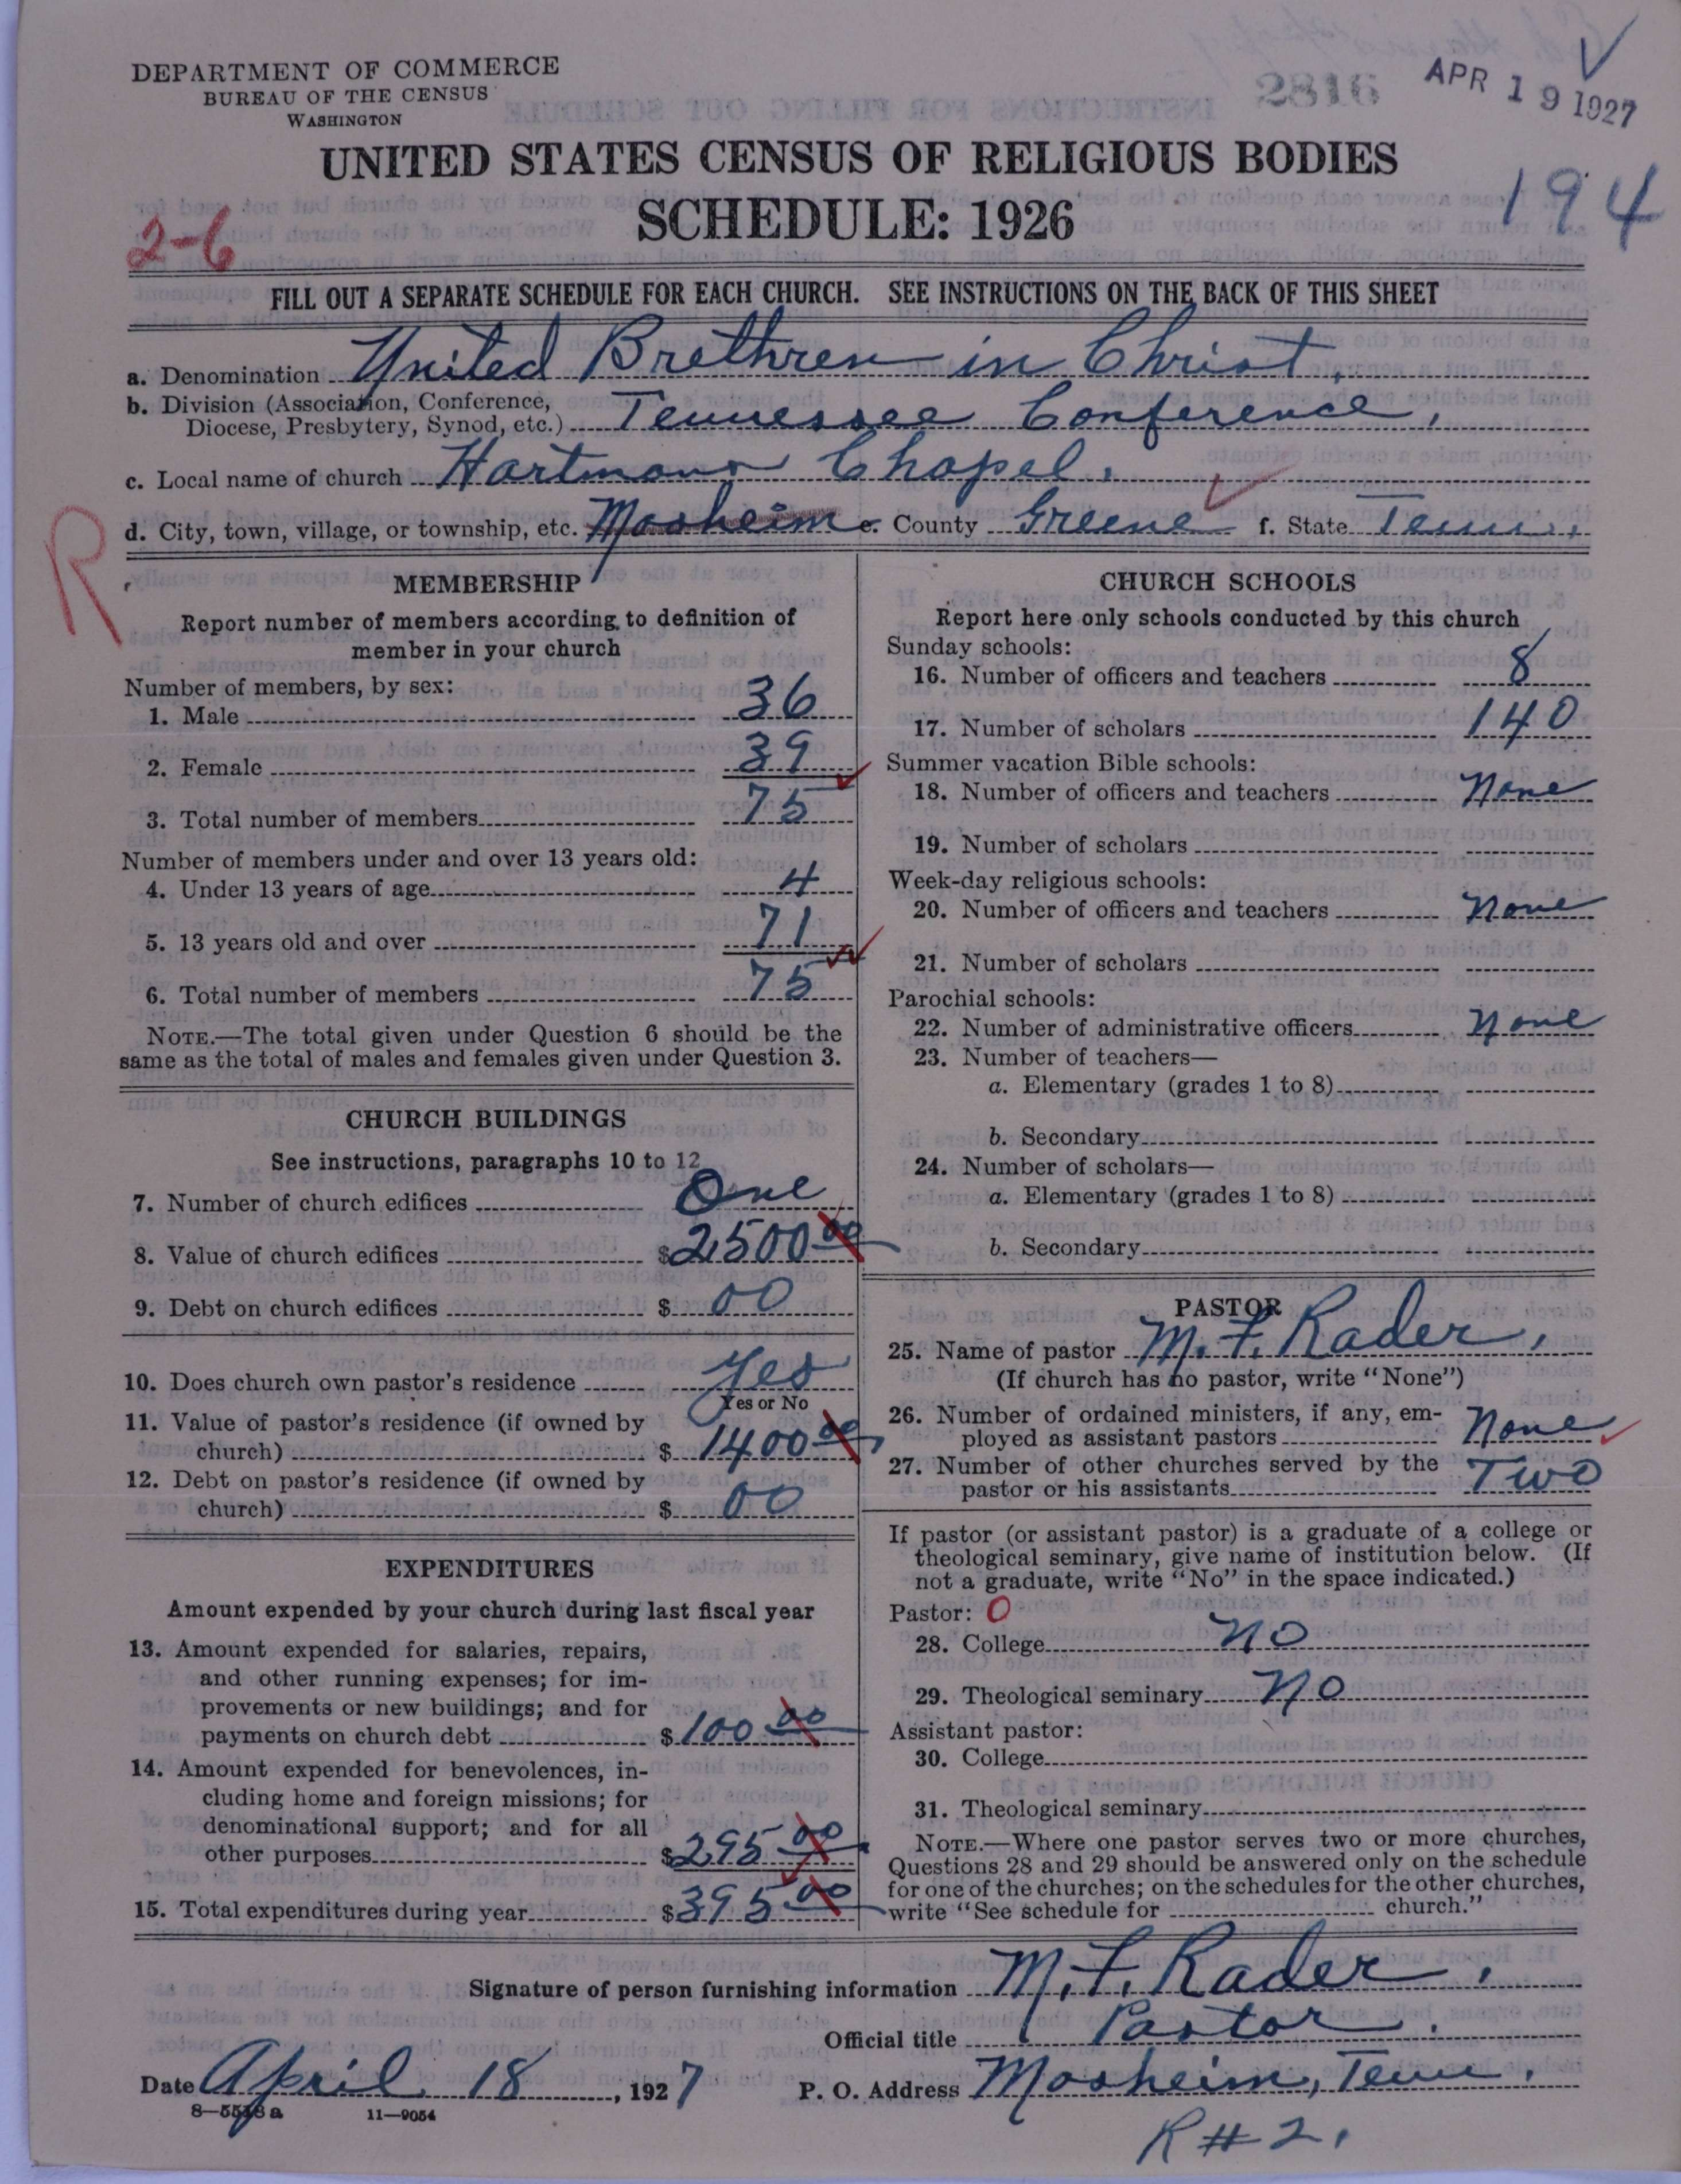 DEPARTMENT OF COMMERCE
BUREAU OF THE CENSUS
WASHINGTON
2816
APR 19 1927
UNITED STATES CENSUS OF RELIGIOUS BODIES
SCHEDULE: 1926
194
2-6
FILL OUT A SEPARATE SCHEDULE FOR EACH CHURCH. SEE INSTRUCTIONS ON THE BACK OF THIS SHEET
a. Denomination United Brethren in Christ.
b. Division (Association, Conference,
Diocese, Presbytery, Synod, etc.) Tennessee Conference,
c. Local name of church Hartmans Chapel.
d. City, town, village, or township, etc. Mosheim e. County Greene f. State Tenn.
R
MEMBERSHIP
Report number of members according to definition of
member in your church
Number of members, by sex:
1. Male 36
2. Female 39
3. Total number of members 75
Number of members under and over 13 years old:
4. Under 13 years of age 4
5. 13 years old and over 71
6. Total number of members 75
NOTE.—The total given under Question 6 should be the
same as the total of males and females given under Question 3.
CHURCH BUILDINGS
See instructions, paragraphs 10 to 12
7. Number of church edifices One
8. Value of church edifices $2500 00
9. Debt on church edifices $ 00
10. Does church own pastor's residence Yes
Yes or No
11. Value of pastor's residence (if owned by
church) $ 1400 00
12. Debt on pastor's residence (if owned by
church) $ 00
EXPENDITURES
Amount expended by your church during last fiscal year
13. Amount expended for salaries, repairs,
and other running expenses; for im-
provements or new buildings; and for
payments on church debt $ 100 00
14. Amount expended for benevolences, in-
cluding home and foreign missions; for
denominational support; and for all
other purposes $295 00
15. Total expenditures during year $395 00
CHURCH SCHOOLS
Report here only schools conducted by this church
Sunday schools:
16. Number of officers and teachers 8
17. Number of scholars 140
Summer vacation Bible schools:
18. Number of officers and teachers None
19. Number of scholars
Week-day religious schools:
20. Number of officers and teachers None
21. Number of scholars
Parochial schools:
22. Number of administrative officers None
23. Number of teachers—
a. Elementary (grades 1 to 8)
b. Secondary
24. Number of scholars—
a. Elementary (grades 1 to 8)
b. Secondary
PASTOR
25. Name of pastor M. F. Rader,
(If church has no pastor, write "None")
26. Number of ordained ministers, if any, em-
ployed as assistant pastors None
27. Number of other churches served by the
pastor or his assistants Two
If pastor (or assistant pastor) is a graduate of a college or
theological seminary, give name of institution below. (If
not a graduate, write "No" in the space indicated.)
Pastor: O
28. College No
29. Theological seminary No
Assistant pastor:
30. College
31. Theological seminary
NOTE.—Where one pastor serves two or more churches,
Questions 28 and 29 should be answered only on the schedule
for one of the churches; on the schedules for the other churches,
write "See schedule for church."
Signature of person furnishing information M. F. Rader.
Official title Pastor.
Date April 18, 1927 P. O. Address Mosheim, Tenn.
8—5518a 11—9054
R#2.